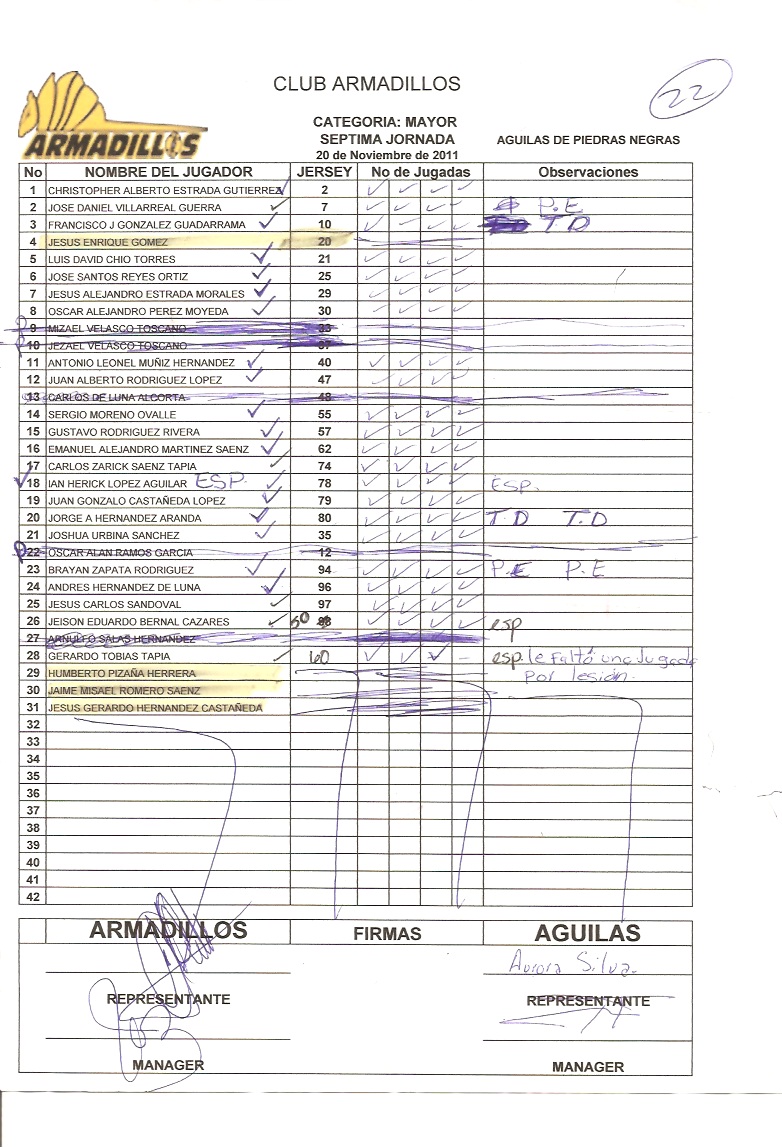 CLUB ARMADILLOS
22
ARMADILLOS
CATEGORIA: MAYOR
SEPTIMA JORNADA
AGUILAS DE PIEDRAS NEGRAS
20 de Noviembre de 2011
No NOMBRE DEL JUGADOR JERSEY No de Jugadas Observaciones
1 CHRISTOPHER ALBERTO ESTRADA GUTIERREZ 2
2 JOSE DANIEL VILLARREAL GUERRA 7 P.E
3 FRANCISCO J GONZALEZ GUADARRAMA 10 T.D
4 JESUS ENRIQUE GOMEZ 20
5 LUIS DAVID CHIO TORRES 21
6 JOSE SANTOS REYES ORTIZ 25
7 JESUS ALEJANDRO ESTRADA MORALES 29
8 OSCAR ALEJANDRO PEREZ MOYEDA 30
9 MIZAEL VELASCO TOSCANO 33
10 JEZAEL VELASCO TOSCANO 37
11 ANTONIO LEONEL MUÑIZ HERNANDEZ 40
12 JUAN ALBERTO RODRIGUEZ LOPEZ 47
13 CARLOS DE LUNA ALCORTA 48
14 SERGIO MORENO OVALLE 55
15 GUSTAVO RODRIGUEZ RIVERA 57
16 EMANUEL ALEJANDRO MARTINEZ SAENZ 62
17 CARLOS ZARICK SAENZ TAPIA 74
18 IAN HERICK LOPEZ AGUILAR ESP. 78 ESP.
19 JUAN GONZALO CASTAÑEDA LOPEZ 79
20 JORGE A HERNANDEZ ARANDA 80 T.D T.D
21 JOSHUA URBINA SANCHEZ 35
22 OSCAR ALAN RAMOS GARCIA 12
23 BRAYAN ZAPATA RODRIGUEZ 94 P.E P.E
24 ANDRES HERNANDEZ DE LUNA 96
25 JESUS CARLOS SANDOVAL 97
26 JEISON EDUARDO BERNAL CAZARES 50 98 esp
27 ARNULFO SALAS HERNANDEZ
28 GERARDO TOBIAS TAPIA 60 esp. le faltó una Jugada
29 HUMBERTO PIZAÑA HERRERA por lesión.
30 JAIME MISAEL ROMERO SAENZ
31 JESUS GERARDO HERNANDEZ CASTAÑEDA
32
33
34
35
36
37
38
39
40
41
42
ARMADILLOS FIRMAS AGUILAS
Aurora Silva.
REPRESENTANTE REPRESENTANTE
MANAGER MANAGER